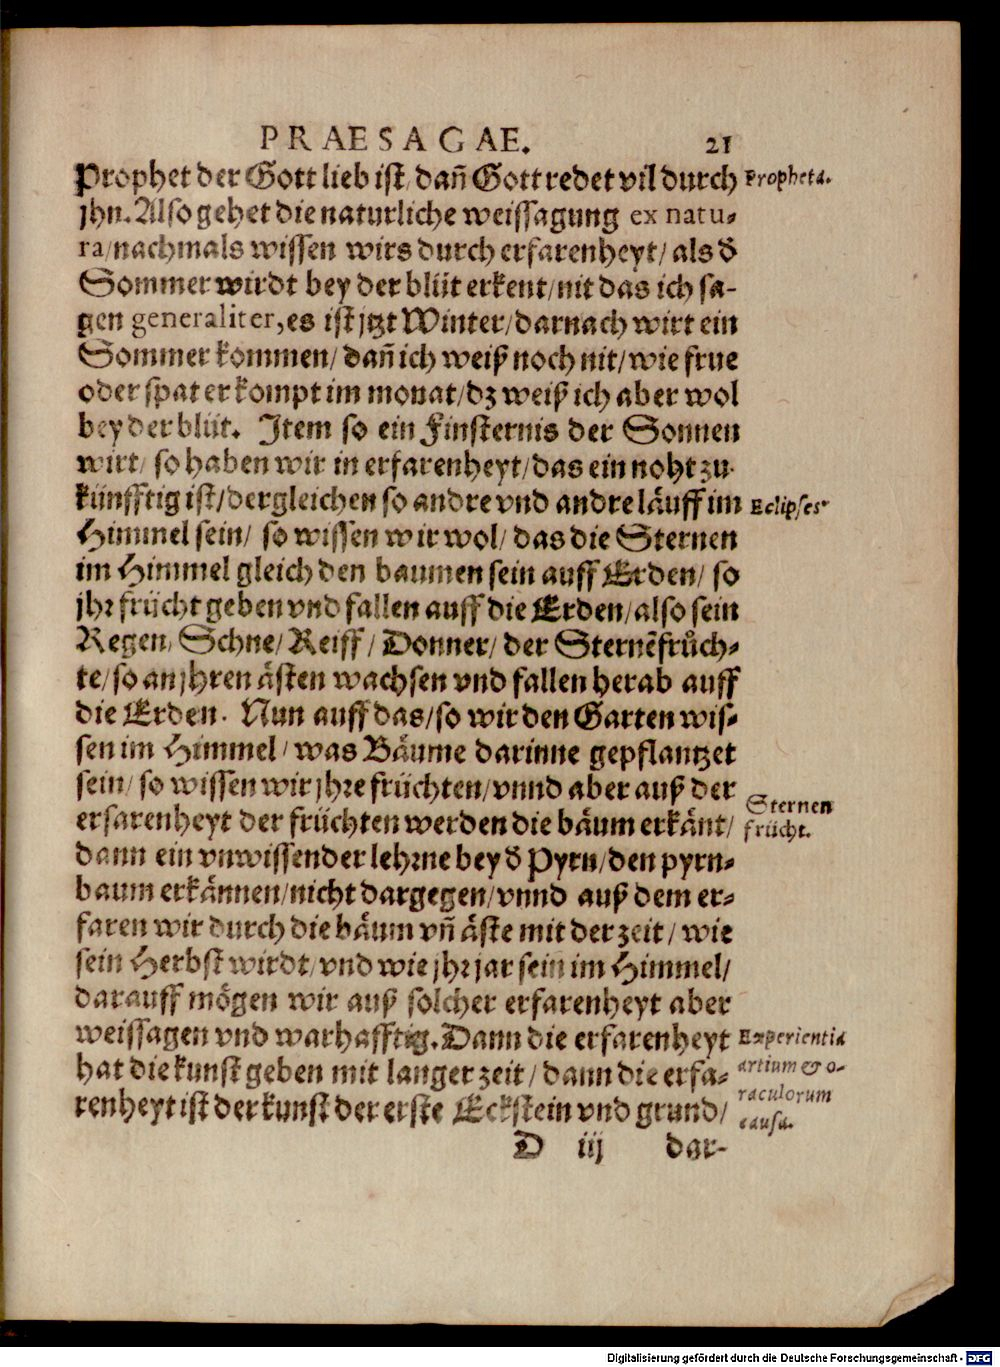 PRAESAGAE. 21
Prophet der Gott lieb ist/ dañ Gott redet vil durch
Propheta.
jhn. Also gehet die naturliche weissagung ex natu-
ra/nachmals wissen wirs durch erfarenheyt/ als ð
Sommer wirdt bey der blüt erkent/nit das ich sa-
gen generaliter, es ist jtzt Winter/darnach wirt ein
Sommer kommen/ dañ ich weiß noch nit/ wie frue
oder spat er kompt im monat/dz weiß ich aber wol
bey der blüt. Item so ein Finsternis der Sonnen
wirt/ so haben wir in erfarenheyt/das ein noht zu-
künfftig ist/dergleichen so andre vnd andre läuff im
Eclipses
Himmel sein/ so wissen wir wol/ das die Sternen
im Himmel gleich den baumen sein auff Erden/ so
jhr frücht geben vnd fallen auff die Erden/also sein
Regen/ Schne/ Reiff/ Donner/ der Sternẽ früch-
te/ so an jhren ästen wachsen vnd fallen herab auff
die Erden. Nun auff das/so wir den Garten wis-
sen im Himmel/ was Bäume darinne gepflantzet
sein/ so wissen wir jhre früchten/vnnd aber auß der
Sternen
erfarenheyt der früchten werden die bäum erkänt/
frücht.
dann ein vnwissender lehrne bey ð Pyrn/den pyrn-
baum erkännen/nicht dargegen/vnnd auß dem er-
faren wir durch die bäum vñ äste mit der zeit/ wie
sein Herbst wirdt/vnd wie jhr jar sein im Himmel/
darauff mögen wir auß solcher erfarenheyt aber
weissagen vnd warhafftig. Dann die erfarenheyt
Experientia
hat die kunst geben mit langer zeit/ dann die erfa-
artium & o-
renheyt ist der kunst der erste Eckstein vnd grund/
raculorum
causa.
D iij dar-
Digitalisierung gefördert durch die Deutsche Forschungsgemeinschaft - DFG